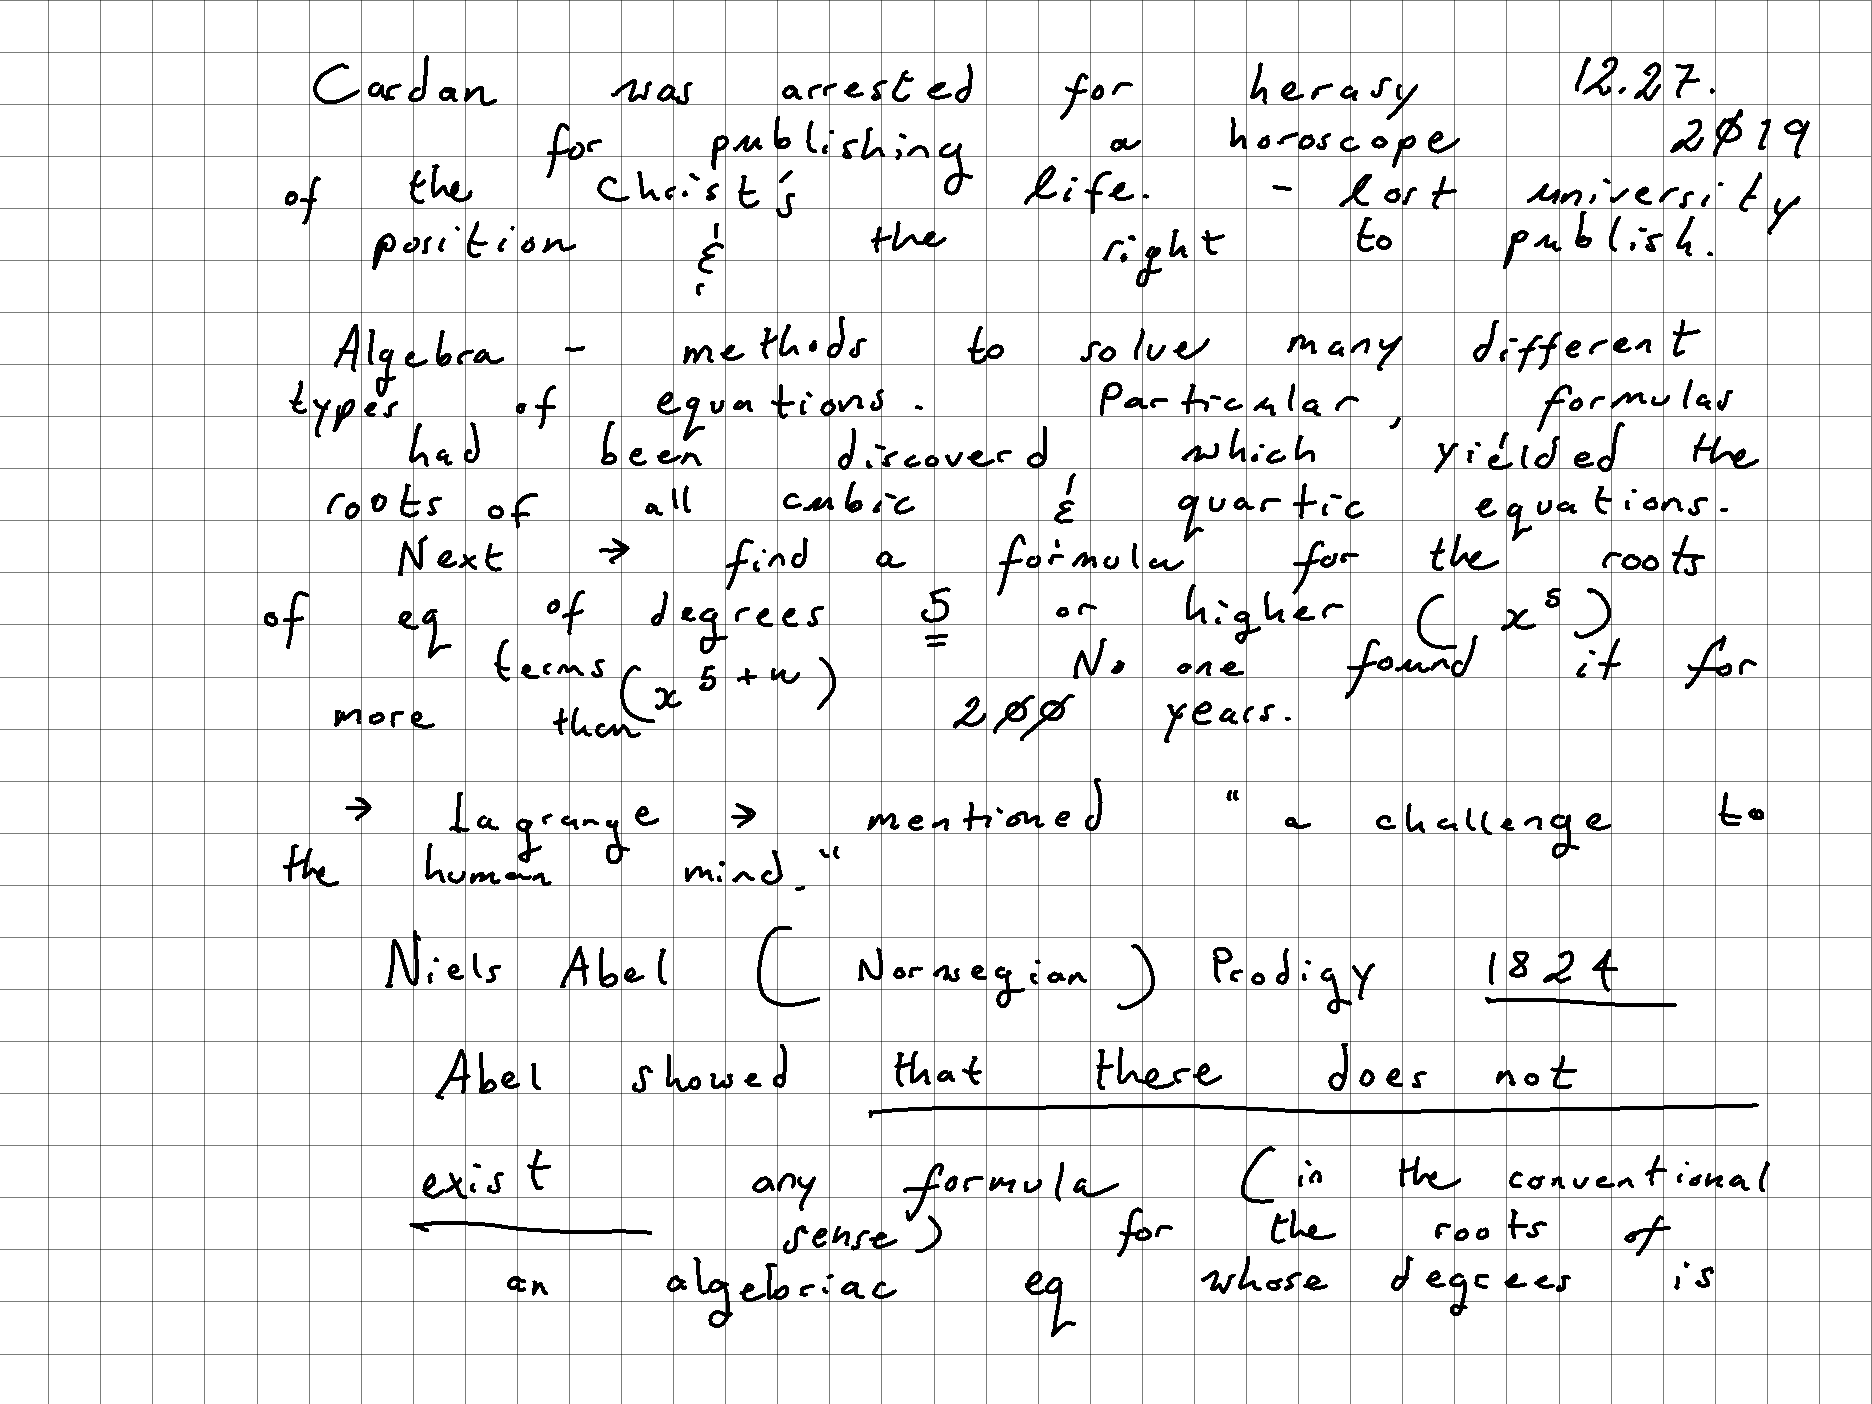 Cardan was arrested for herasy 12.27.
for publishing a horoscope 2019
of the Christ's life. - lost university
position & the right to publish.
Algebra - methods to solve many different
types of equations. Particular, formulas
had been discoverd which yielded the
roots of all cubic & quartic equations.
Next → find a formula for the roots
of eq of degrees 5 or higher (x⁵)
terms (x⁵⁺ⁿ) No one found it for
more than 200 years.
→ Lagrange → mentioned "a challenge to
the human mind."
Niels Abel (Norwegian) Prodigy 1824
Abel showed that there does not
exist any formula (in the conventional
sense) for the roots of
an algebriac eq whose degrees is